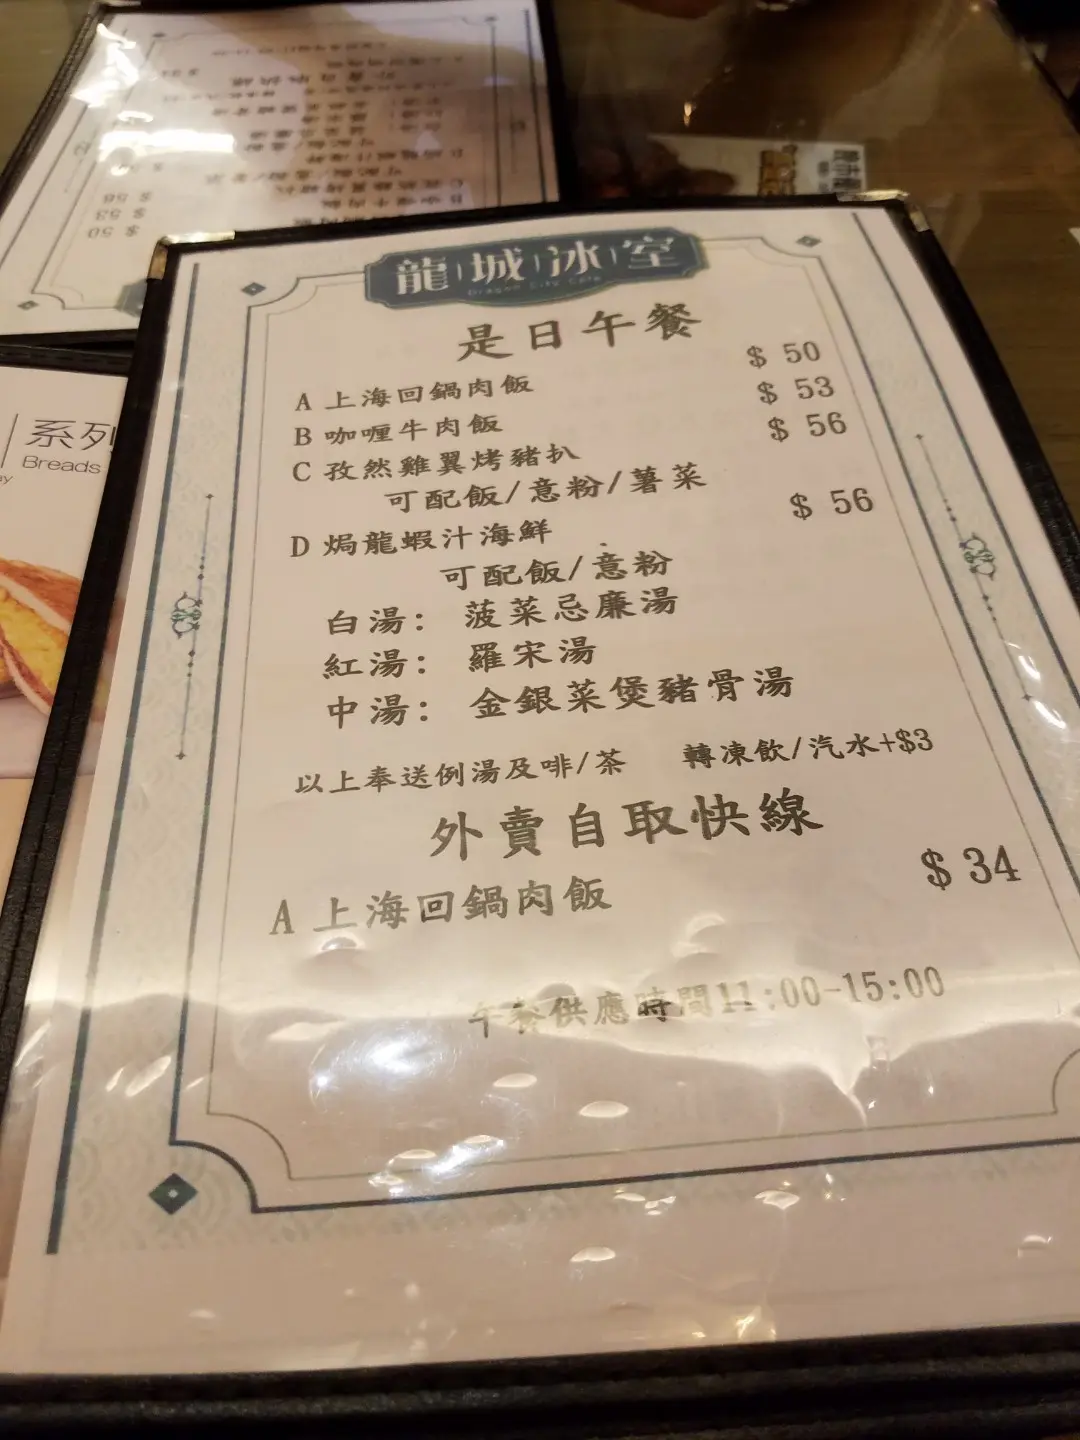 龍城冰室
Dragon City Cafe
是日午餐
A 上海回鍋肉飯 $ 50
B 咖喱牛肉飯 $ 53
C 孜然雞翼烤豬扒 $ 56
可配飯/意粉/薯菜
D 焗龍蝦汁海鮮 $ 56
可配飯/意粉
白湯: 菠菜忌廉湯
紅湯: 羅宋湯
中湯: 金銀菜煲豬骨湯
以上奉送例湯及啡/茶 轉凍飲/汽水+$3
外賣自取快線
A 上海回鍋肉飯 $ 34
午餐供應時間11:00-15:00
系列
Breads
$ 50
$ 53
$ 56